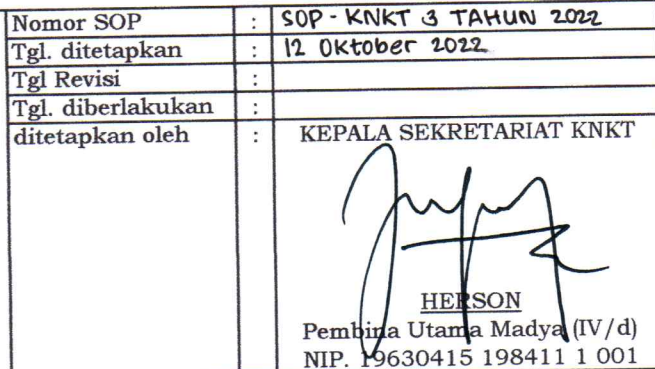 Nomor SOP : SOP - KNKT 3 TAHUN 2022
Tgl. ditetapkan : 12 Oktober 2022
Tgl Revisi :
Tgl. diberlakukan :
ditetapkan oleh : KEPALA SEKRETARIAT KNKT
HERSON
Pembina Utama Madya (IV/d)
NIP. 19630415 198411 1 001